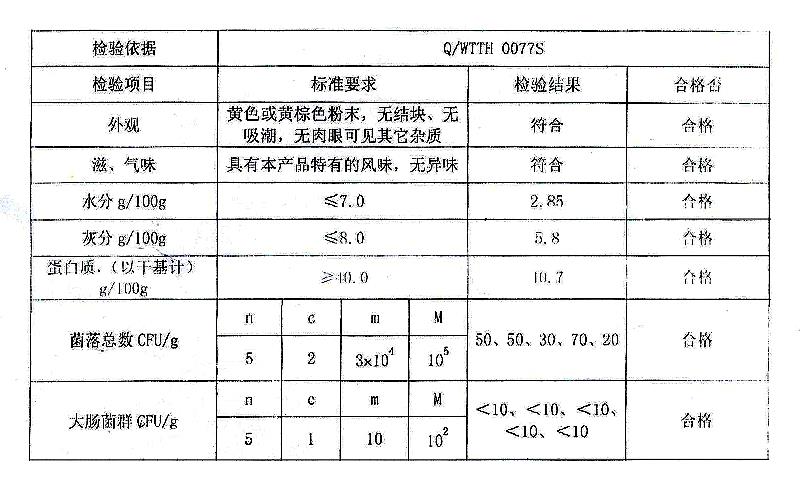 检验依据 Q/WTTH 0077S
检验项目 标准要求 检验结果 合格否
外观 黄色或黄棕色粉末，无结块、无吸潮，无肉眼可见其它杂质 符合 合格
滋、气味 具有本产品特有的风味，无异味 符合 合格
水分 g/100g ≤7.0 2.85 合格
灰分 g/100g ≤8.0 5.8 合格
蛋白质．（以干基计） g/100g ≥40.0 40.7 合格
菌落总数 CFU/g n c m M 50、50、30、70、20 合格
5 2 3×10⁴ 10⁵
大肠菌群 CFU/g n c m M <10、<10、<10、<10、<10 合格
5 1 10 10²